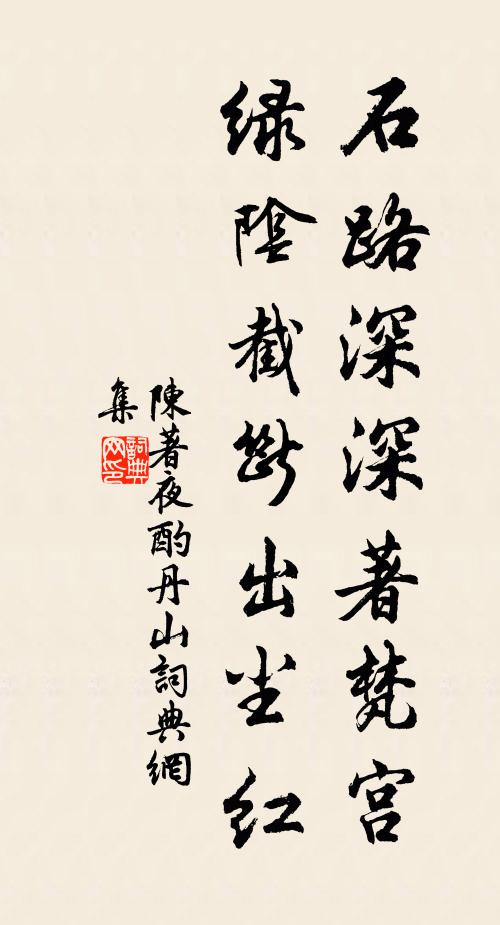 石路深深著梵宫
绿陰截断出尘红
陳著夜酌丹山詞典網
集
詞典
网印